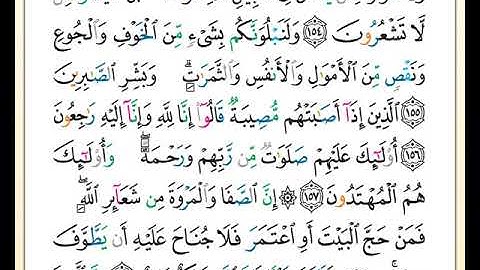 لَّا تَشْعُرُونَ ۝١٥٤ وَلَنَبْلُوَنَّكُم بِشَىْءٍ مِّنَ الْخَوْفِ وَالْجُوعِ
وَنَقْصٍ مِّنَ الْأَمْوَٰلِ وَالْأَنفُسِ وَالثَّمَرَٰتِ ۗ وَبَشِّرِ الصَّٰبِرِينَ
۝١٥٥ الَّذِينَ إِذَآ أَصَٰبَتْهُم مُّصِيبَةٌ قَالُوٓا۟ إِنَّا لِلَّهِ وَإِنَّآ إِلَيْهِ رَٰجِعُونَ
۝١٥٦ أُو۟لَٰٓئِكَ عَلَيْهِمْ صَلَوَٰتٌ مِّن رَّبِّهِمْ وَرَحْمَةٌ ۖ وَأُو۟لَٰٓئِكَ
هُمُ الْمُهْتَدُونَ ۝١٥٧ ۞ إِنَّ الصَّفَا وَالْمَرْوَةَ مِن شَعَآئِرِ اللَّهِ ۖ
فَمَنْ حَجَّ الْبَيْتَ أَوِ اعْتَمَرَ فَلَا جُنَاحَ عَلَيْهِ أَن يَطَّوَّفَ